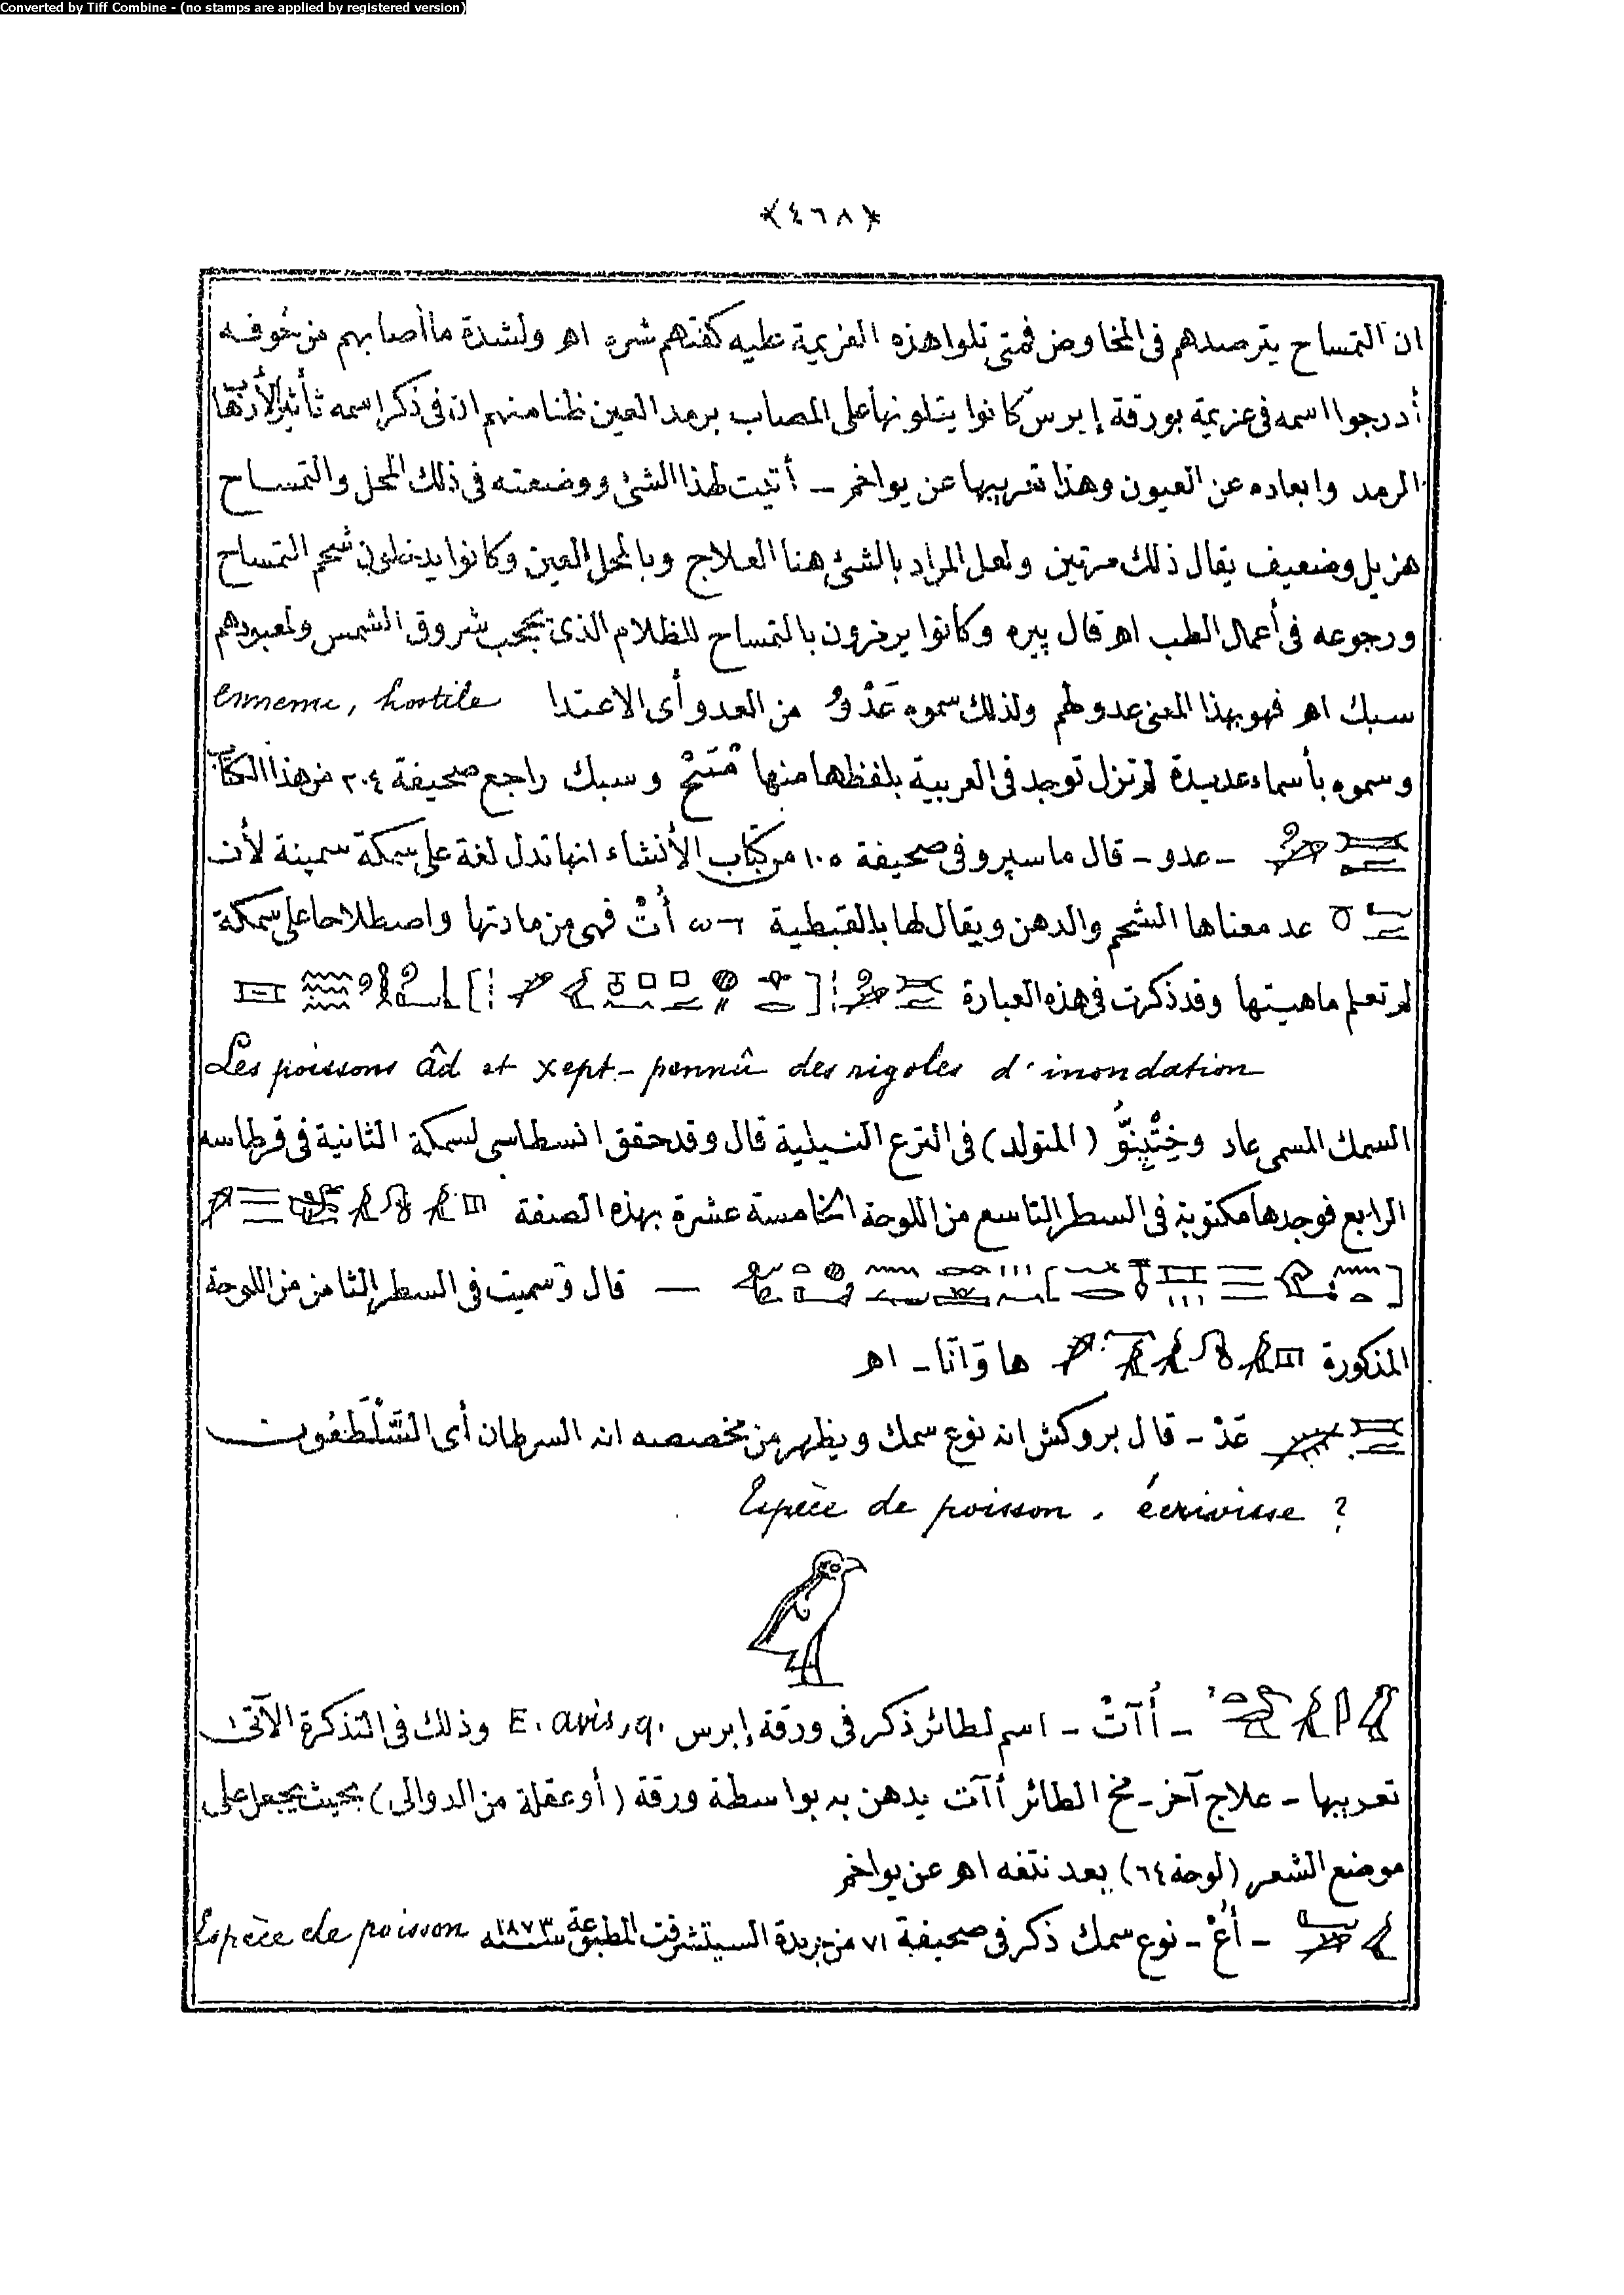 Converted by Tiff Combine - (no stamps are applied by registered version)
﴿٤٦٨﴾
ان التمساح يترصدهم فى المخاوض فمتى تلوا هذه العزيمة عليه كفتهم شره اه ولشدة ما أصابهم من خوفه
أدرجوا اسمه فى عزيمة بورقة إبرس كانوا يتلونها على المصاب برمد العين ظنا منهم ان فى ذكر اسمه تأثيرا لأذهاب
الرمد وابعاده عن العيون وهذا تعريبها عن يواخم - أتيت لهذا الشئ ووضعته فى ذلك المحل والتمساح
هزيل وضعيف يقال ذلك مرتين ولعل المراد بالشئ هنا العلاج وبالمحل العين وكانوا يدخلون شحم التمساح
ورجوعه فى أعمال الطب اه قال پيره وكانوا يرمزون بالتمساح للظلام الذى يحجب شروق الشمس ولمعبودهم
سبك اه فهو بهذا المعنى عدو لهم ولذلك سموه عَدْوُ من العدو أى الاعتدا ennemi, hostile
وسموه بأسماء عديدة لم تزل توجد فى العربية بلفظها منها مْسَحْ وسبك راجع صحيفة ٢٠٤ من هذا الكتاب
- عدو - قال ماسپرو فى صحيفة ١٠٥ من كتاب الأنشاء انها تدل لغة على سمكة سمينة لأن
عد معناها الشحم والدهن ويقال لها بالقبطية ⲱⲧ أُتْ فهى من مادتها واصطلاحا على سمكة
لم تعلم ماهيتها وقد ذكرت فى هذه العبارة
Les poissons âd et xept-pennû des rigoles d'inondation
السمك المسمى عاد وخِتْپِنُّو (المتولد) فى الترع النيلية قال وقد حقق انسطاسى لسمكة الثانية فى قرطاسه
الرابع فوجدها مكتوبة فى السطر التاسع من اللوحة الخامسة عشرة بهذه الصفة
— قال وسميت فى السطر الثامن من اللوحة
المذكورة ها وَانَا - اه
عَدْ - قال بروكش انه نوع سمك ويظهر من مخصصه انه السرطان أى السَّلْطَعُون
Espèce de poisson, écrivisse ?
- أُآتْ - اسم لطائر ذكر فى ورقة إبرس E. avis, q. وذلك فى التذكرة الآتى
تعريبها - علاج آخر - مخ الطائر أآت يدهن به بواسطة ورقة (أو عقلة من الدوالى) بحيث يجعل على
موضع الشعر (لوحة ٦٤) بعد نتفه اه عن يواخم
- أُعْ - نوع سمك ذكر فى صحيفة ٧١ من جريدة السيتشرفت المطبوعة سنة ١٨٧٣ Espèce de poisson